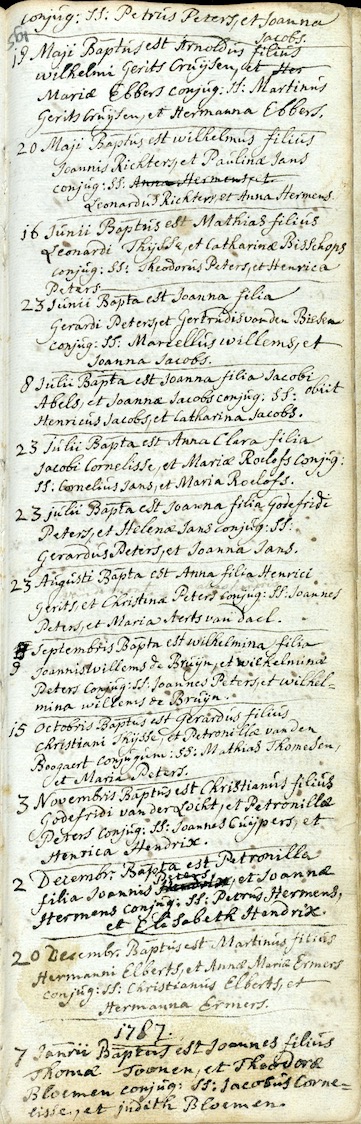 conjug: SS: Petrus Peters, et Joanna
Jacobs.
19 Maji Baptus est Arnoldus filius
wilhelmi Gerits Cruÿsen, et Her
Mariæ Ebbers conjug: SS: Martinus
Gerits Cruÿsen, et Hermanna Ebbers.
20 Maji Baptus est wilhelmus filius
Joannis Richters, et Paulinæ Jans
conjug: SS: Anna Hermens, et
Leonardus Richters, et Anna Hermens.
16 Junii Baptus est Mathias filius
Leonardi Thijsse, et Catharinæ Bisschops
conjug: SS: Theodorus Peters, et Henrica
Peters
23 Junii Bapta est Joanna filia
Gerardi Peters, et Gertrudis vanden
conjug: SS: Marcellus willems, et
Joanna Jacobs.
8 Julii Bapta est Joanna filia Jacobi
Abels, et Joannæ Jacobs conjug: SS: obiit
Henricus Jacobs, et Catharina Jacobs.
23 Julii Bapta est Anna Clara filia
Jacobi Cornelisse, et Mariæ Roelofs Conjug:
SS: Cornelius Jans, et Maria Roelofs.
23 julii Bapta est Joanna filia Godefridi
Peters, et Helenæ Jans conjug: SS:
Gerardus Peters, et Joanna Jans.
23 Augusti Bapta est Anna filia Henrici
Gerits, et Christinæ Peters conjug: SS: Joannes
Peters, et Maria Aerts van dael.
Septembris Bapta est wilhelmina filia
9 Joannis willems de Bruÿn, et wilhelminæ
Peters Conjug: SS: Joannes Peters, et wilhel-
mina willems de Bruÿn.
15 Octobris Baptus est Gerardus filius
Christiani Thijsse, et Petronillæ vanden
Boogaert Conjugum: SS: Mathias Thomesen,
et Maria Peters.
3 Novembris Baptus est Christianus filius
Godefridi vander Loikt, et Petronillæ
Peters Conjug: SS: Joannes Cuÿpers, et
Henrica Hendrix.
2 Decembr: Bapta est Petronilla
Peters
filia Joannis Hendrix, et Joannæ
Hermens Conjug: SS: Petrus Hermens,
et Elisabeth Hendrix.
20 Decembr. Baptus est Martinus, filius
Hermanni Elberts, et Annæ Mariæ Ermers
conjug: SS: Christianus Elberts, et
Hermanna Ermers.
1787.
7 Janrii Baptus est Joannes filius
Thomæ Toonen, et Theodoræ
Bloemen conjug: SS: Jacobus Corne-
lisse, et judith Bloemen.